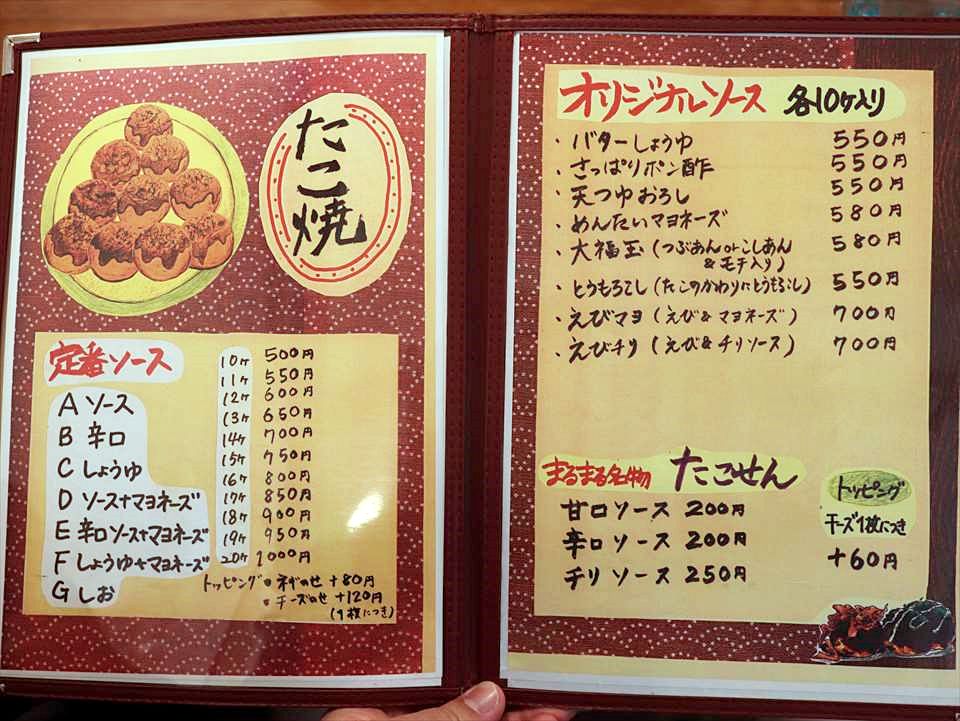 たこ焼
定番ソース
A ソース
B 辛口
C しょうゆ
D ソース+マヨネーズ
E 辛口ソース+マヨネーズ
F しょうゆ+マヨネーズ
G しお
10ケ 500円
11ケ 550円
12ケ 600円
13ケ 650円
14ケ 700円
15ケ 750円
16ケ 800円
17ケ 850円
18ケ 900円
19ケ 950円
20ケ 1000円
トッピング・ネギのせ +80円
・チーズのせ +120円
(1枚につき)
オリジナルソース 各10ケ入り
・バターしょうゆ 550円
・さっぱりポン酢 550円
・天つゆおろし 550円
・めんたいマヨネーズ 580円
・大福玉(つぶあんorこしあん 580円
&モチ入り)
・とうもろこし(たこのかわりにとうもろこし) 550円
・えびマヨ(えび&マヨネーズ) 700円
・えびチリ(えび&チリソース) 700円
まるまる名物 たこせん
甘口ソース 200円
辛口ソース 200円
チリソース 250円
トッピング
チーズ1枚につき
+60円